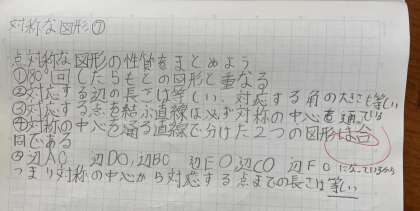 対称な図形⑦
点対称な図形の性質をまとめよう
①180°回したらもとの図形と重なる
②対応する辺の長さは等しい、対応する角の大きさも等しい
③対応する点を結ぶ直線は必ず対称の中心を通っている
④対称の中心を通る直線で分けた2つの図形は合
同である
⑤辺AO、辺DO、辺BO 辺EO辺CO 辺FOになっているから
つまり対称の中心から対応する点までの長さは等しい